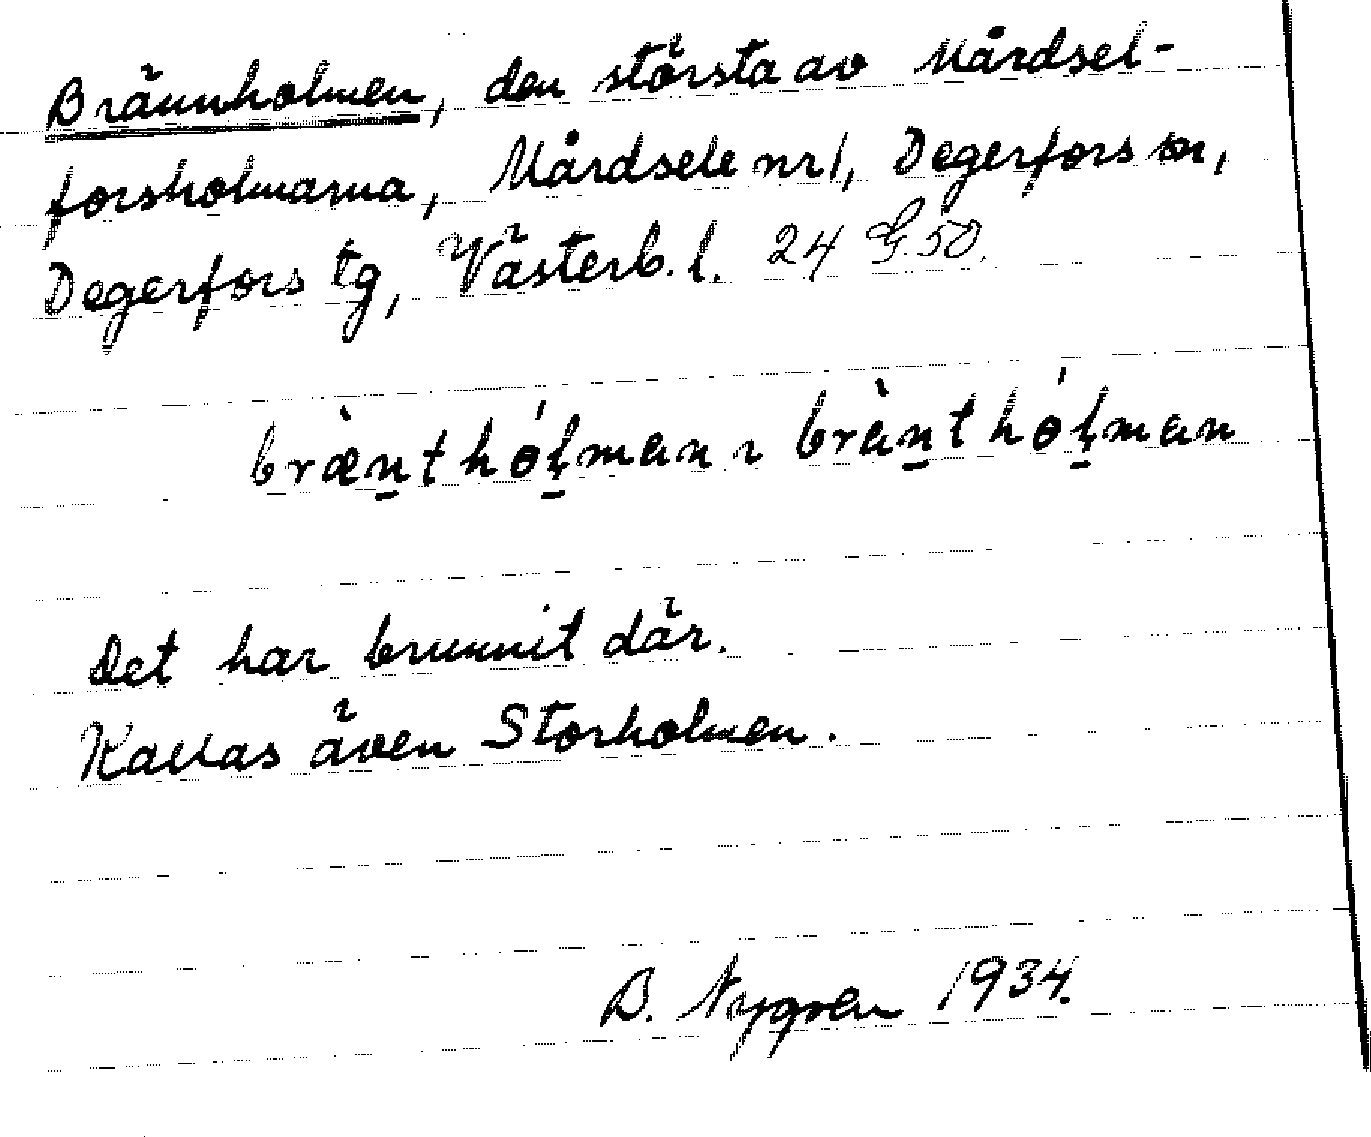 Brännholmen, den största av Mårdsel-
forsholmarna, Mårdsele nr 1, Degerfors sn,
Degerfors tg, Västerb. l. 24 G. 50.
bræ̀n̠t hól̠man ɿ brànt̠ hól̠man
Det har brunnit där.
Kallas även Storholmen.
B. Nygren 1934.